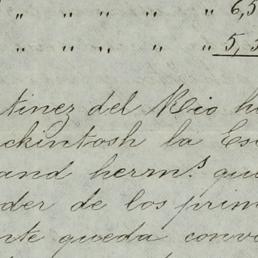 " " " " " 6,5
" " " " " 5,5
tinez del Rio h
ckintosh la Es
and herm.s que
der de los prim
nte queda conv